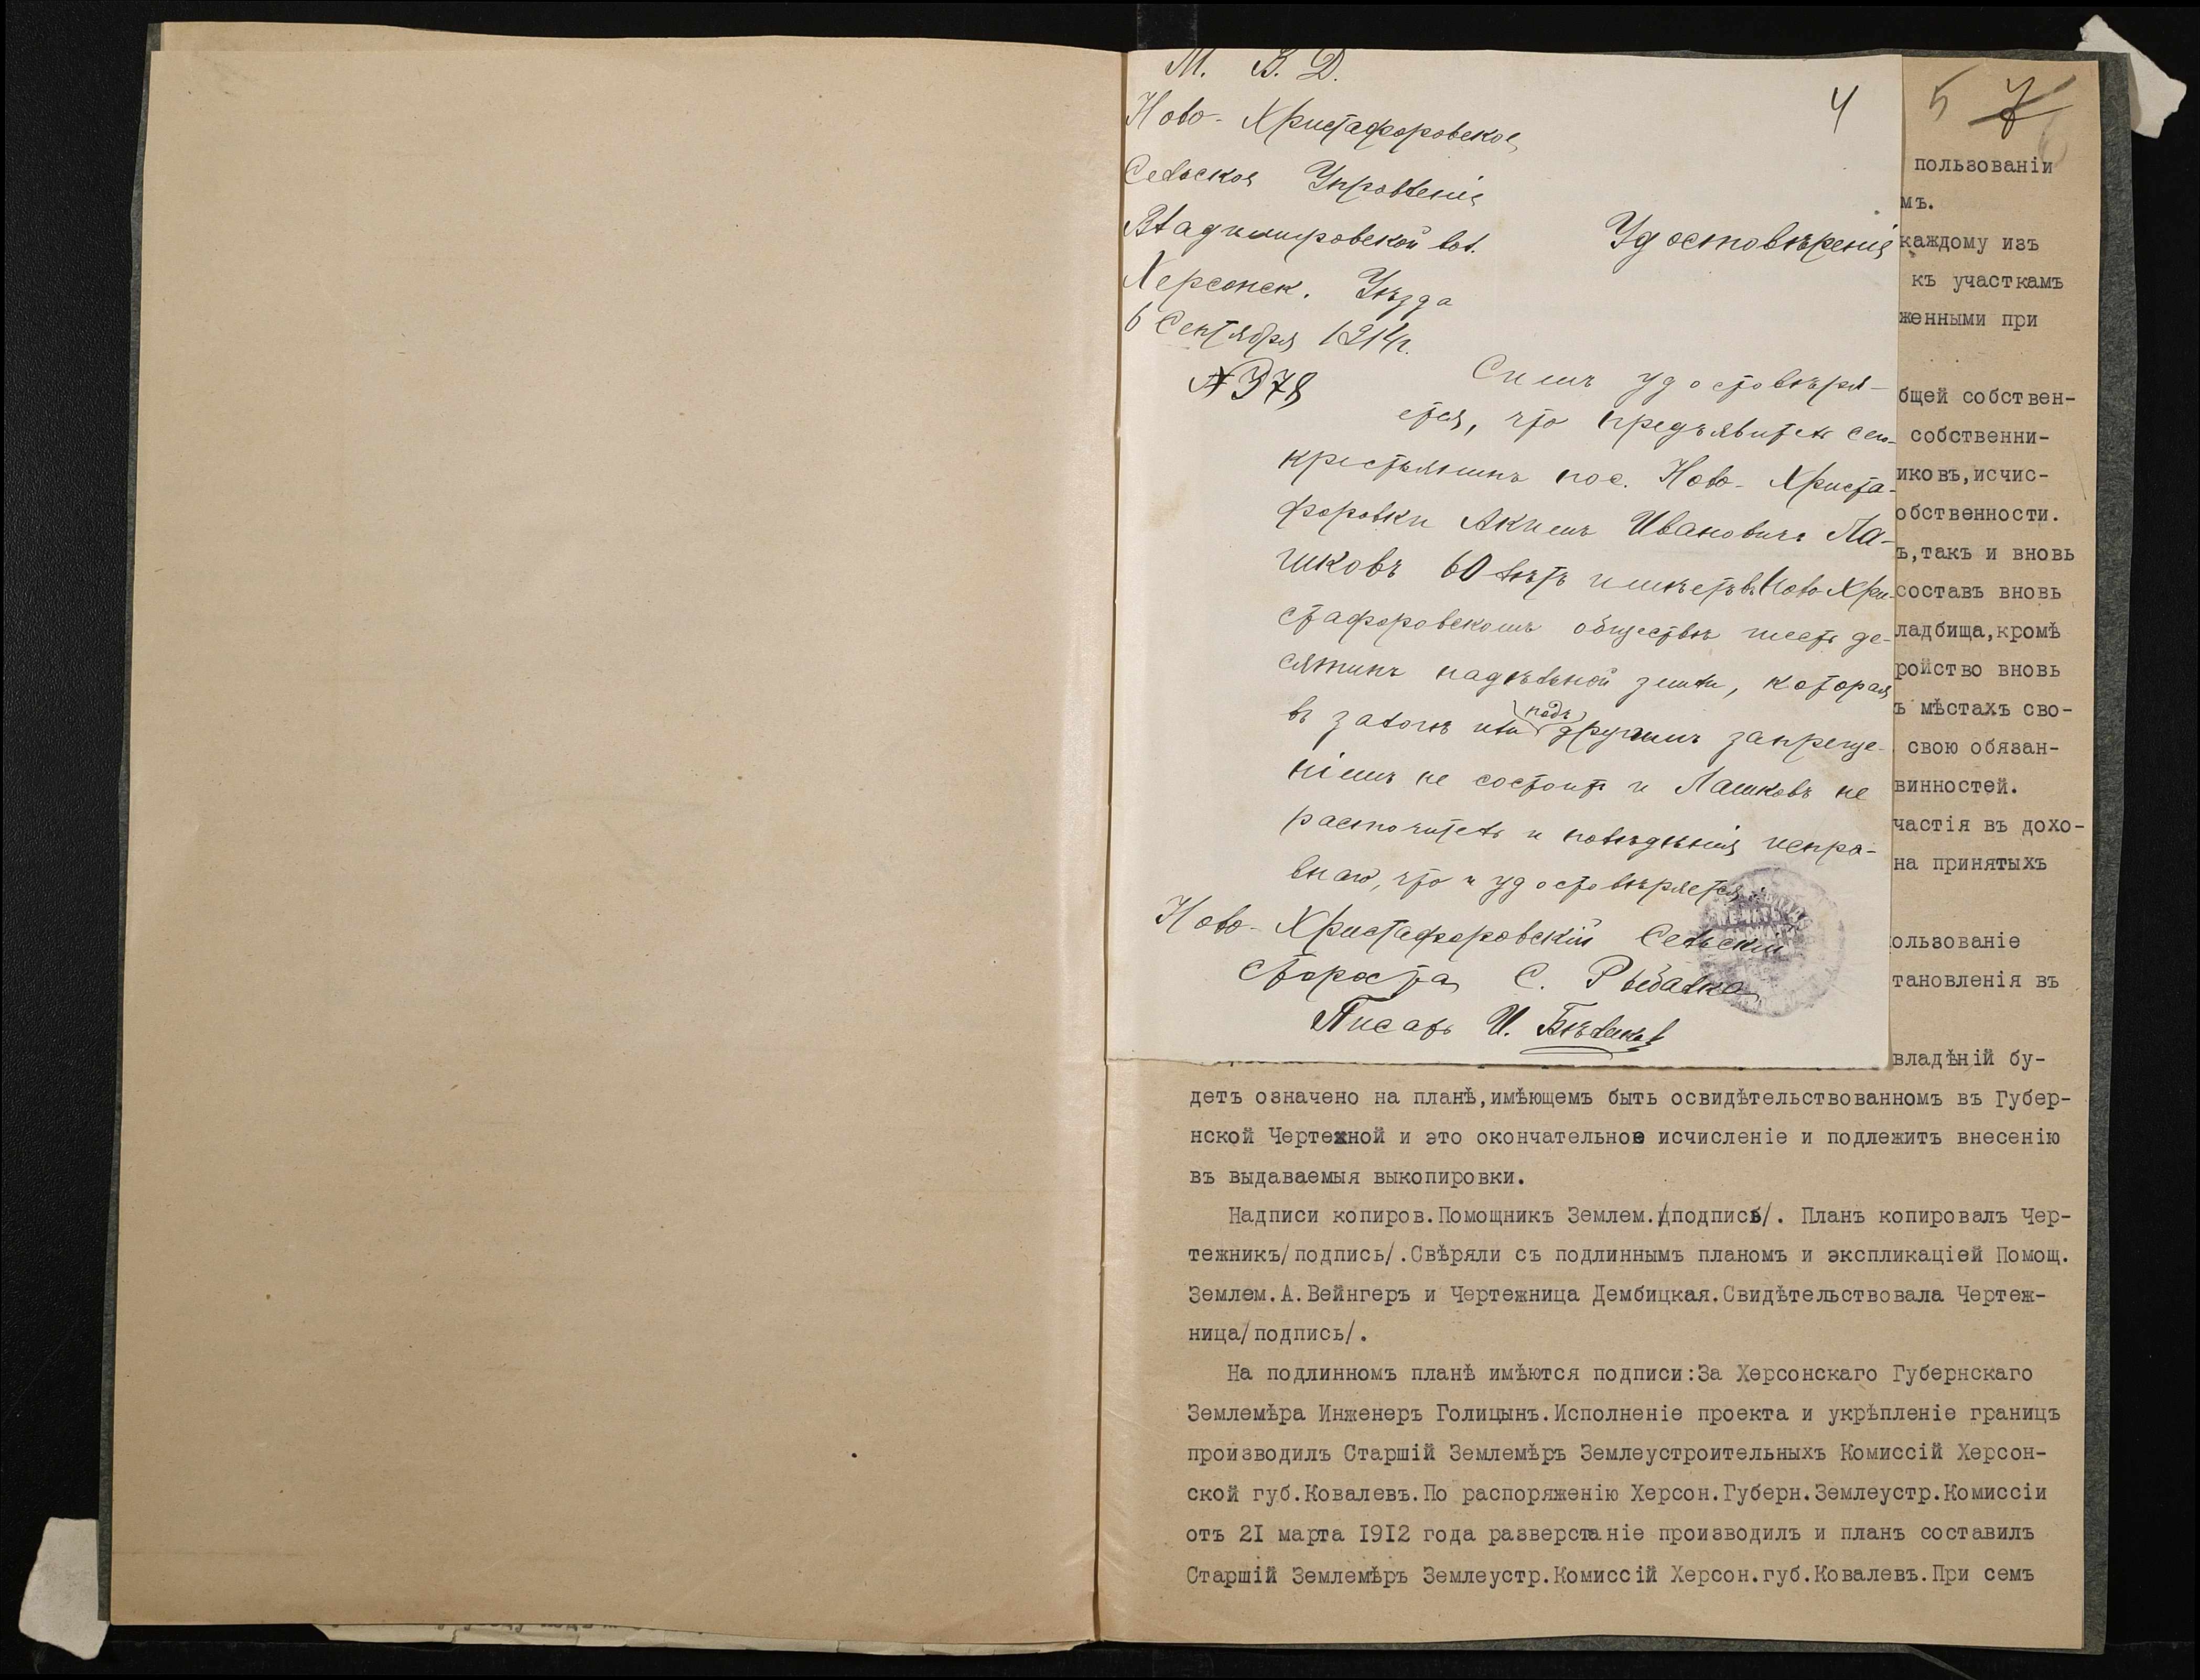 М. В. Д.
4
5 7
Ново-Христафоровское
Сельское Управленіе
Владимировской вол.
Удостовѣреніе
Херсонск. Уѣзда
6 Сентября 1914г.
№ 378
Симъ удостовѣря-
ется, что предъявитель сего
крестьянинъ пос. Ново-Христа-
форовки Акимъ Ивановичъ Ла-
шковъ 60 лѣтъ имѣетъ въ Ново-Хри-
стафоровскомъ обществѣ шесть де-
сятинъ надѣльной земли, которая
въ залогѣ или подъ другимъ запреще-
ніемъ не состоитъ и Лашковъ не
расточитель и поведенія испра-
внаго, что и удостовѣряется.
Ново-Христафоровскій Сельскій
Староста С. Рыбалка
Писарь И.
пользованіи
мъ.
каждому изъ
къ участкамъ
женными при
бщей собствен-
собственни-
иковъ,исчис-
обственности.
ъ,такъ и вновь
составъ вновь
ладбища,кромѣ
ройство вновь
ъ мѣстахъ сво-
свою обязан-
винностей.
частія въ дохо-
на принятыхъ
ользованіе
тановленія въ
владѣній бу-
детъ означено на планѣ,имѣющемъ быть освидѣтельствованномъ въ Губер-
нской Чертежной и это окончательное исчисленіе и подлежитъ внесенію
въ выдаваемыя выкопировки.
Надписи копиров.Помощникъ Землем./подпись/. Планъ копировалъ Чер-
тежникъ/подпись/.Свѣряли съ подлиннымъ планомъ и экспликаціей Помощ.
Землем.А.Вейнгеръ и Чертежница Дембицкая.Свидѣтельствовала Чертеж-
ница/подпись/.
На подлинномъ планѣ имѣются подписи:За Херсонскаго Губернскаго
Землемѣра Инженеръ Голицынъ.Исполненіе проекта и укрѣпленіе границъ
производилъ Старшій Землемѣръ Землеустроительныхъ Комиссій Херсон-
ской губ.Ковалевъ.По распоряженію Херсон.Губерн.Землеустр.Комиссіи
отъ 21 марта 1912 года разверстаніе производилъ и планъ составилъ
Старшій Землемѣръ Землеустр.Комиссій Херсон.губ.Ковалевъ.При семъ